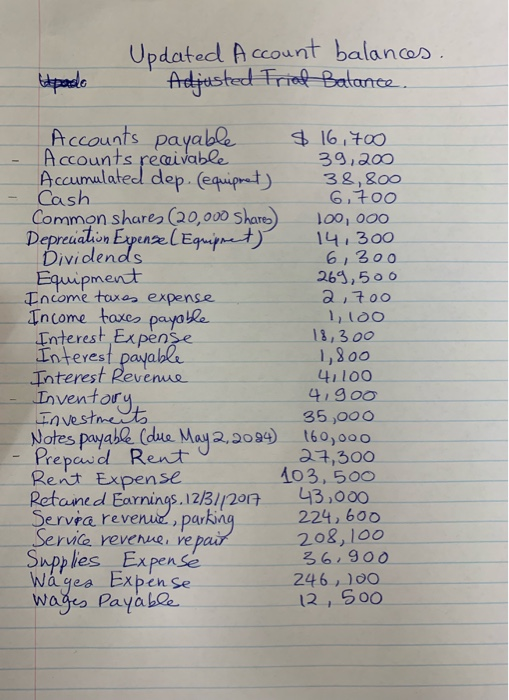 Updated Account balances.
Upade Adjusted Trial Balance.
Accounts payable $ 16,700
- Accounts receivable 39,200
Accumulated dep. (equipmet) 38,800
- Cash 6,700
Common shares (20,000 shares) 100,000
Depreciation Expense (Equipmet) 14,300
Dividends 6,300
Equipment 269,500
Income taxes expense 2,700
Income taxes payable 1,100
Interest Expense 18,300
Interest payable 1,800
Interest Revenue 4,100
- Inventory 4,900
Investments 35,000
Notes payable (due May 2, 2024) 160,000
- Prepaid Rent 27,300
Rent Expense 103,500
Retained Earnings. 12/31/2017 43,000
Service revenue, parking 224,600
Service revenue, repair 208,100
Supplies Expense 36,900
Wages Expense 246,100
Wages Payable 12,500